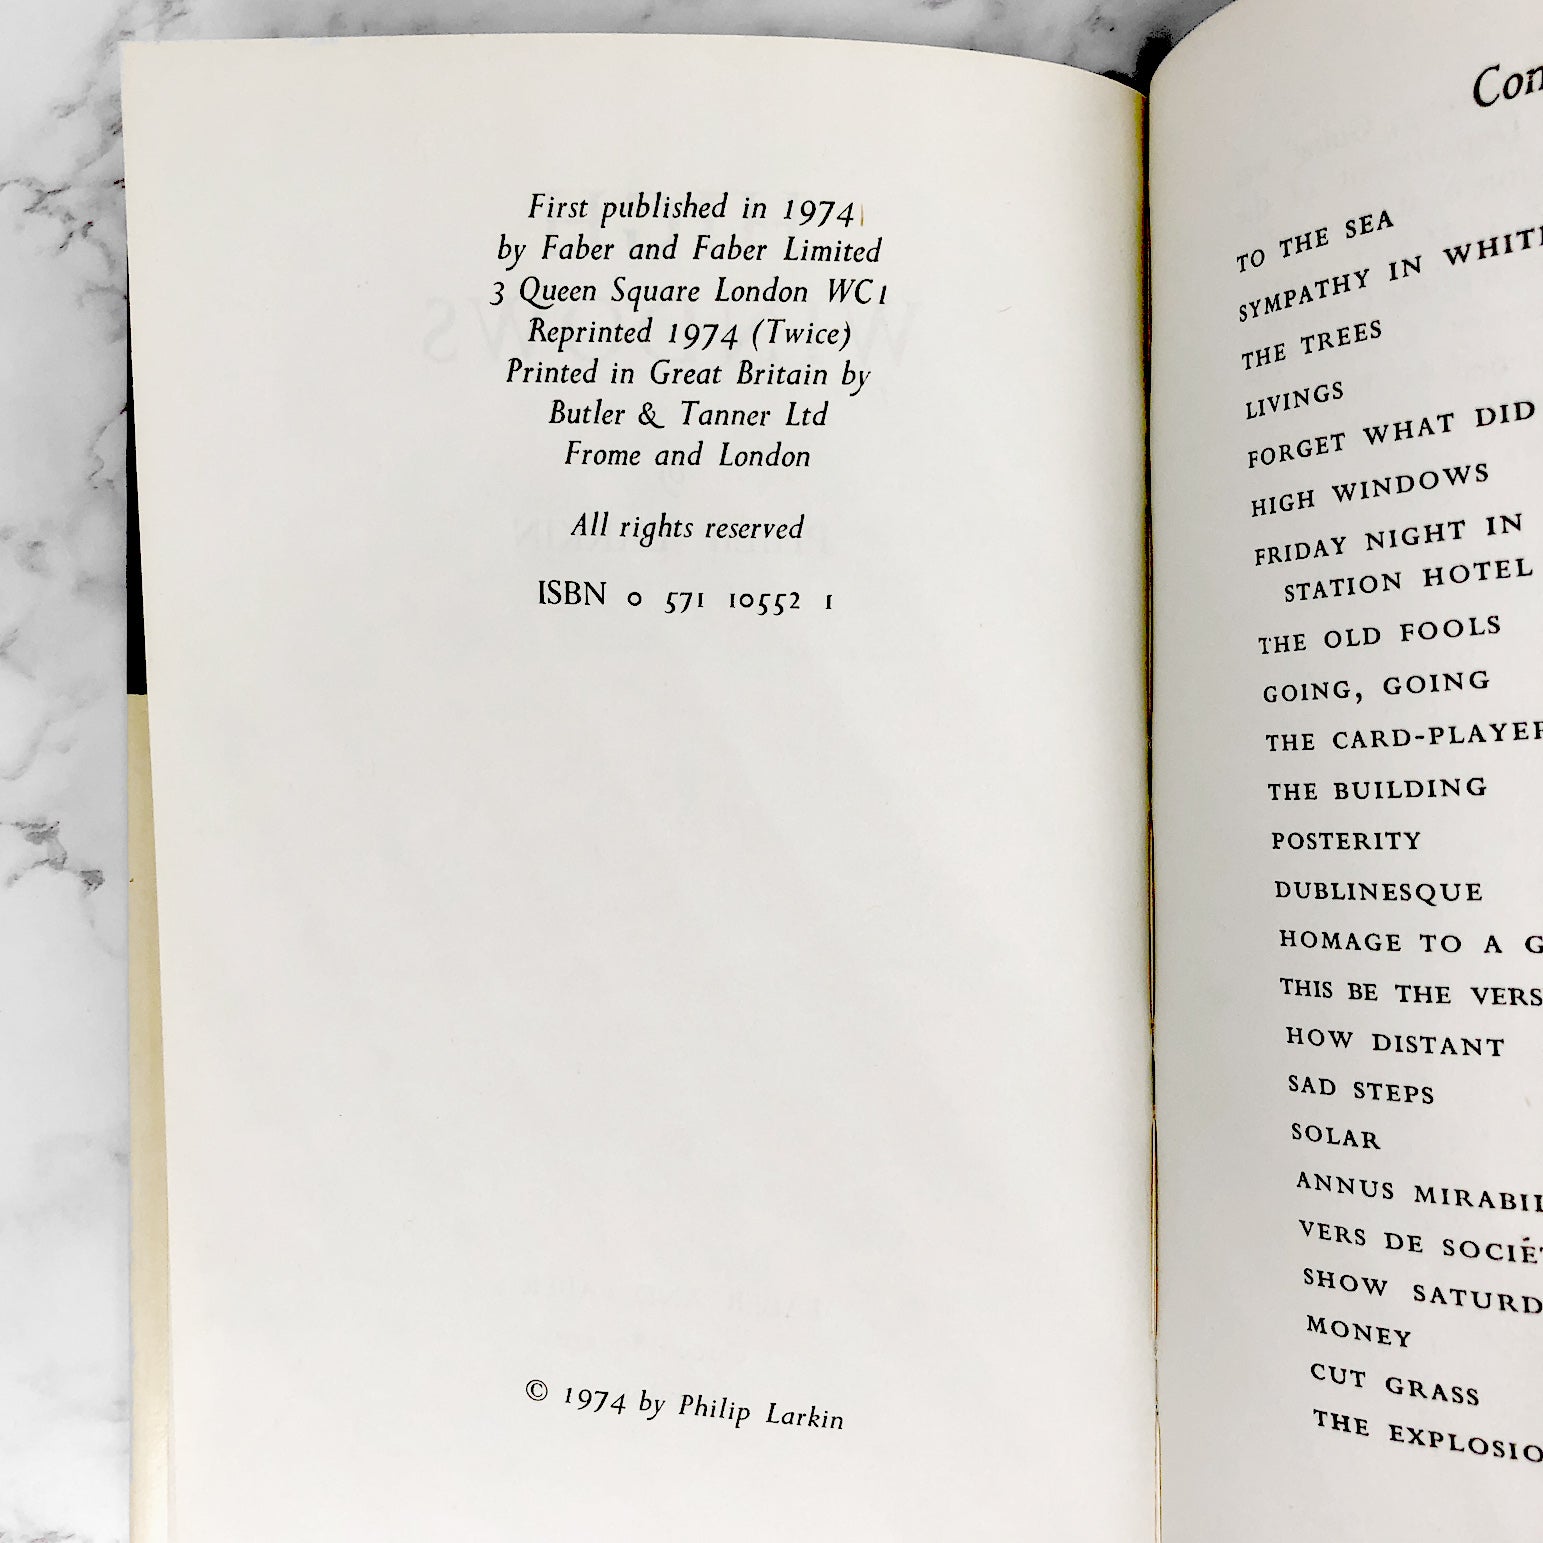 First published in 1974
by Faber and Faber Limited
3 Queen Square London WC1
Reprinted 1974 (Twice)
Printed in Great Britain by
Butler & Tanner Ltd
Frome and London
All rights reserved
ISBN 0 571 10552 1
© 1974 by Philip Larkin
Con
TO THE SEA
SYMPATHY IN WHIT
THE TREES
LIVINGS
FORGET WHAT DID
HIGH WINDOWS
FRIDAY NIGHT IN
STATION HOTEL
THE OLD FOOLS
GOING, GOING
THE CARD-PLAYER
THE BUILDING
POSTERITY
DUBLINESQUE
HOMAGE TO A G
THIS BE THE VERS
HOW DISTANT
SAD STEPS
SOLAR
ANNUS MIRABIL
VERS DE SOCIÉ
SHOW SATURD
MONEY
CUT GRASS
THE EXPLOSIO